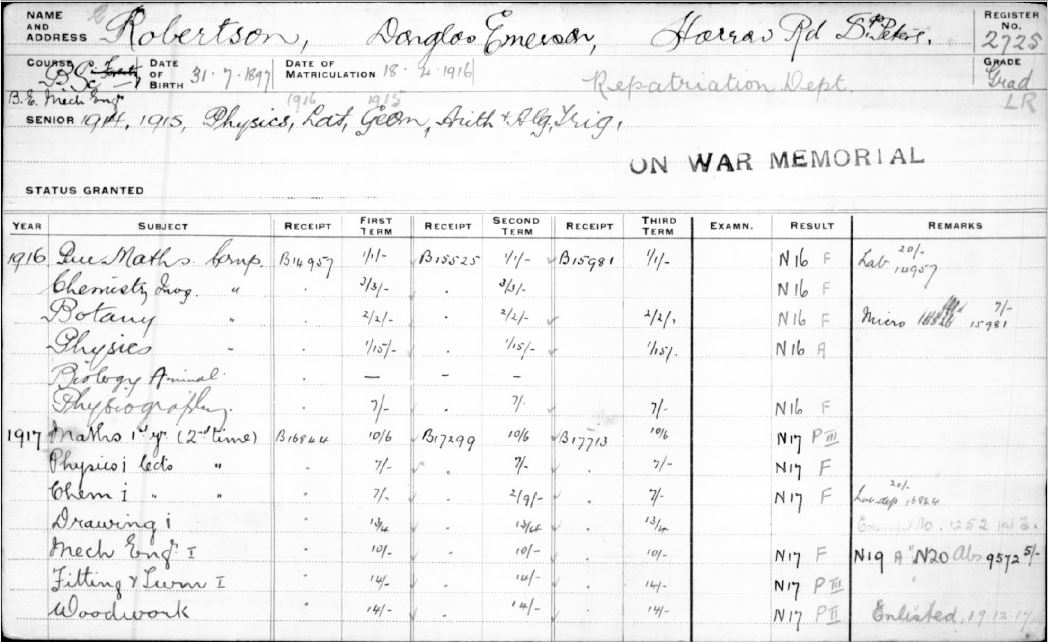 NAME AND ADDRESS Robertson, Douglas Emerson, Harrow Rd St Peters. REGISTER NO. 2725
COURSE BSc DATE OF BIRTH 31.7.1897 DATE OF MATRICULATION 18.4.1916 Repatriation Dept. GRADE Grad LR
B.E. Mech Eng
1916 1915
SENIOR 1914, 1915, Physics, Lat, Geom, Arith & Alg, Trig,
ON WAR MEMORIAL
STATUS GRANTED
YEAR SUBJECT RECEIPT FIRST TERM RECEIPT SECOND TERM RECEIPT THIRD TERM EXAMN. RESULT REMARKS
1916 Maths. Comp. B14957 1/1/- B15525 1/1/- B15981 1/1/- N16 F Lab 20/- 14957
Chemistry Inog. " 3/3/- 3/3/- N16 F
Botany " 2/2/- 2/2/- 2/2/- N16 F Micro 7/- 15981
Physics " 1/15/- 1/15/- 1/15/- N16 A
Biology Animal. — – –
Physiography. 7/- 7/- 7/- N16 F
1917 Maths 1st yr (2nd time) B16844 10/6 B17299 10/6 B17713 10/6 N17 P III
Physics i Lects " 7/- 7/- 7/- N17 F
Chem i " " 7/- 2/9/- 7/- N17 F Lab dep 20/- 16844
Drawing i 13/4 13/4 13/4 No. 1252
Mech Eng I 10/- 10/- 10/- N17 F N19 A N20 Abs 9572 5/-
Fitting & Turn I 14/- 14/- 14/- N17 P III
Woodwork 14/- 14/- 14/- N17 P II Enlisted, 19.12.17